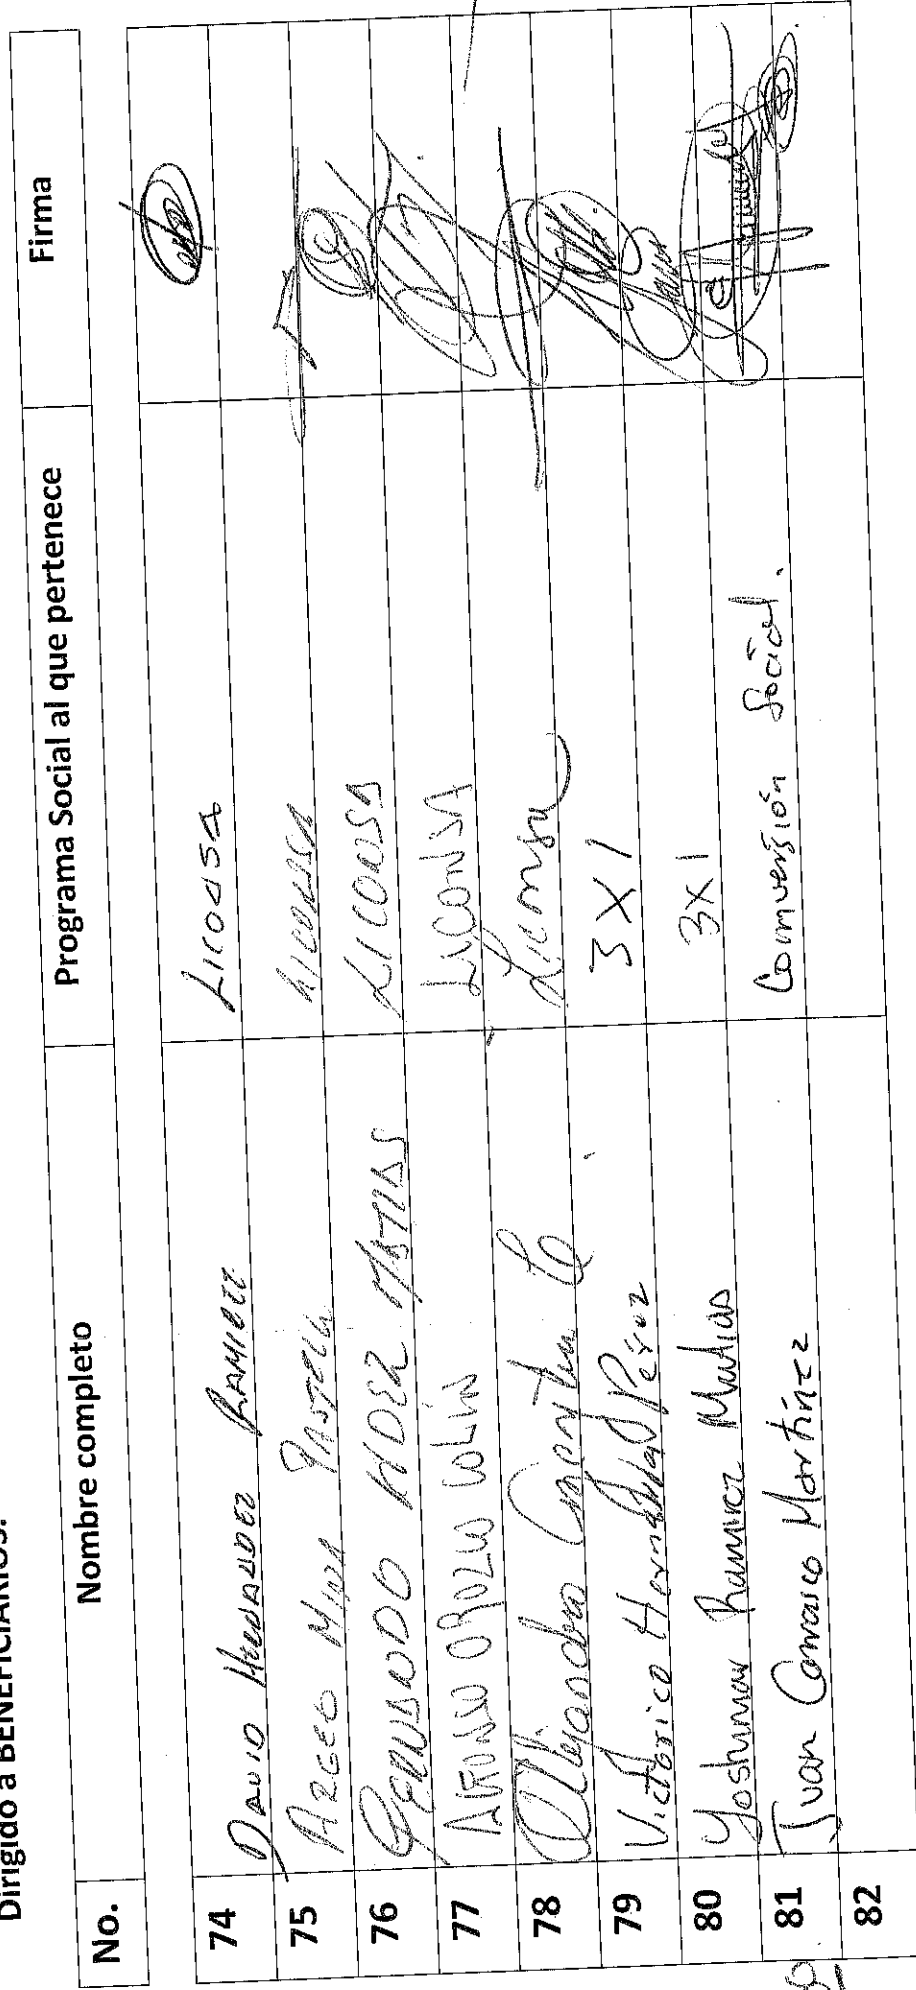 Dirigido a BENEFICIARIOS:
No. Nombre completo Programa Social al que pertenece Firma
74 DAVID HERNANDEZ RAMIREZ LICONSA
75 MIZA LICONSA
76 HDEZ MATIAS LICONSA
77 ALFONSO OROZCO COLIN LICONSA
78 Alejandra Liconsa
79 Victorico Hernández Pérez 3X1
80 Yoshimar Ramirez Matias 3X1
81 Juan Carrasco Martínez Comversión Social.
82